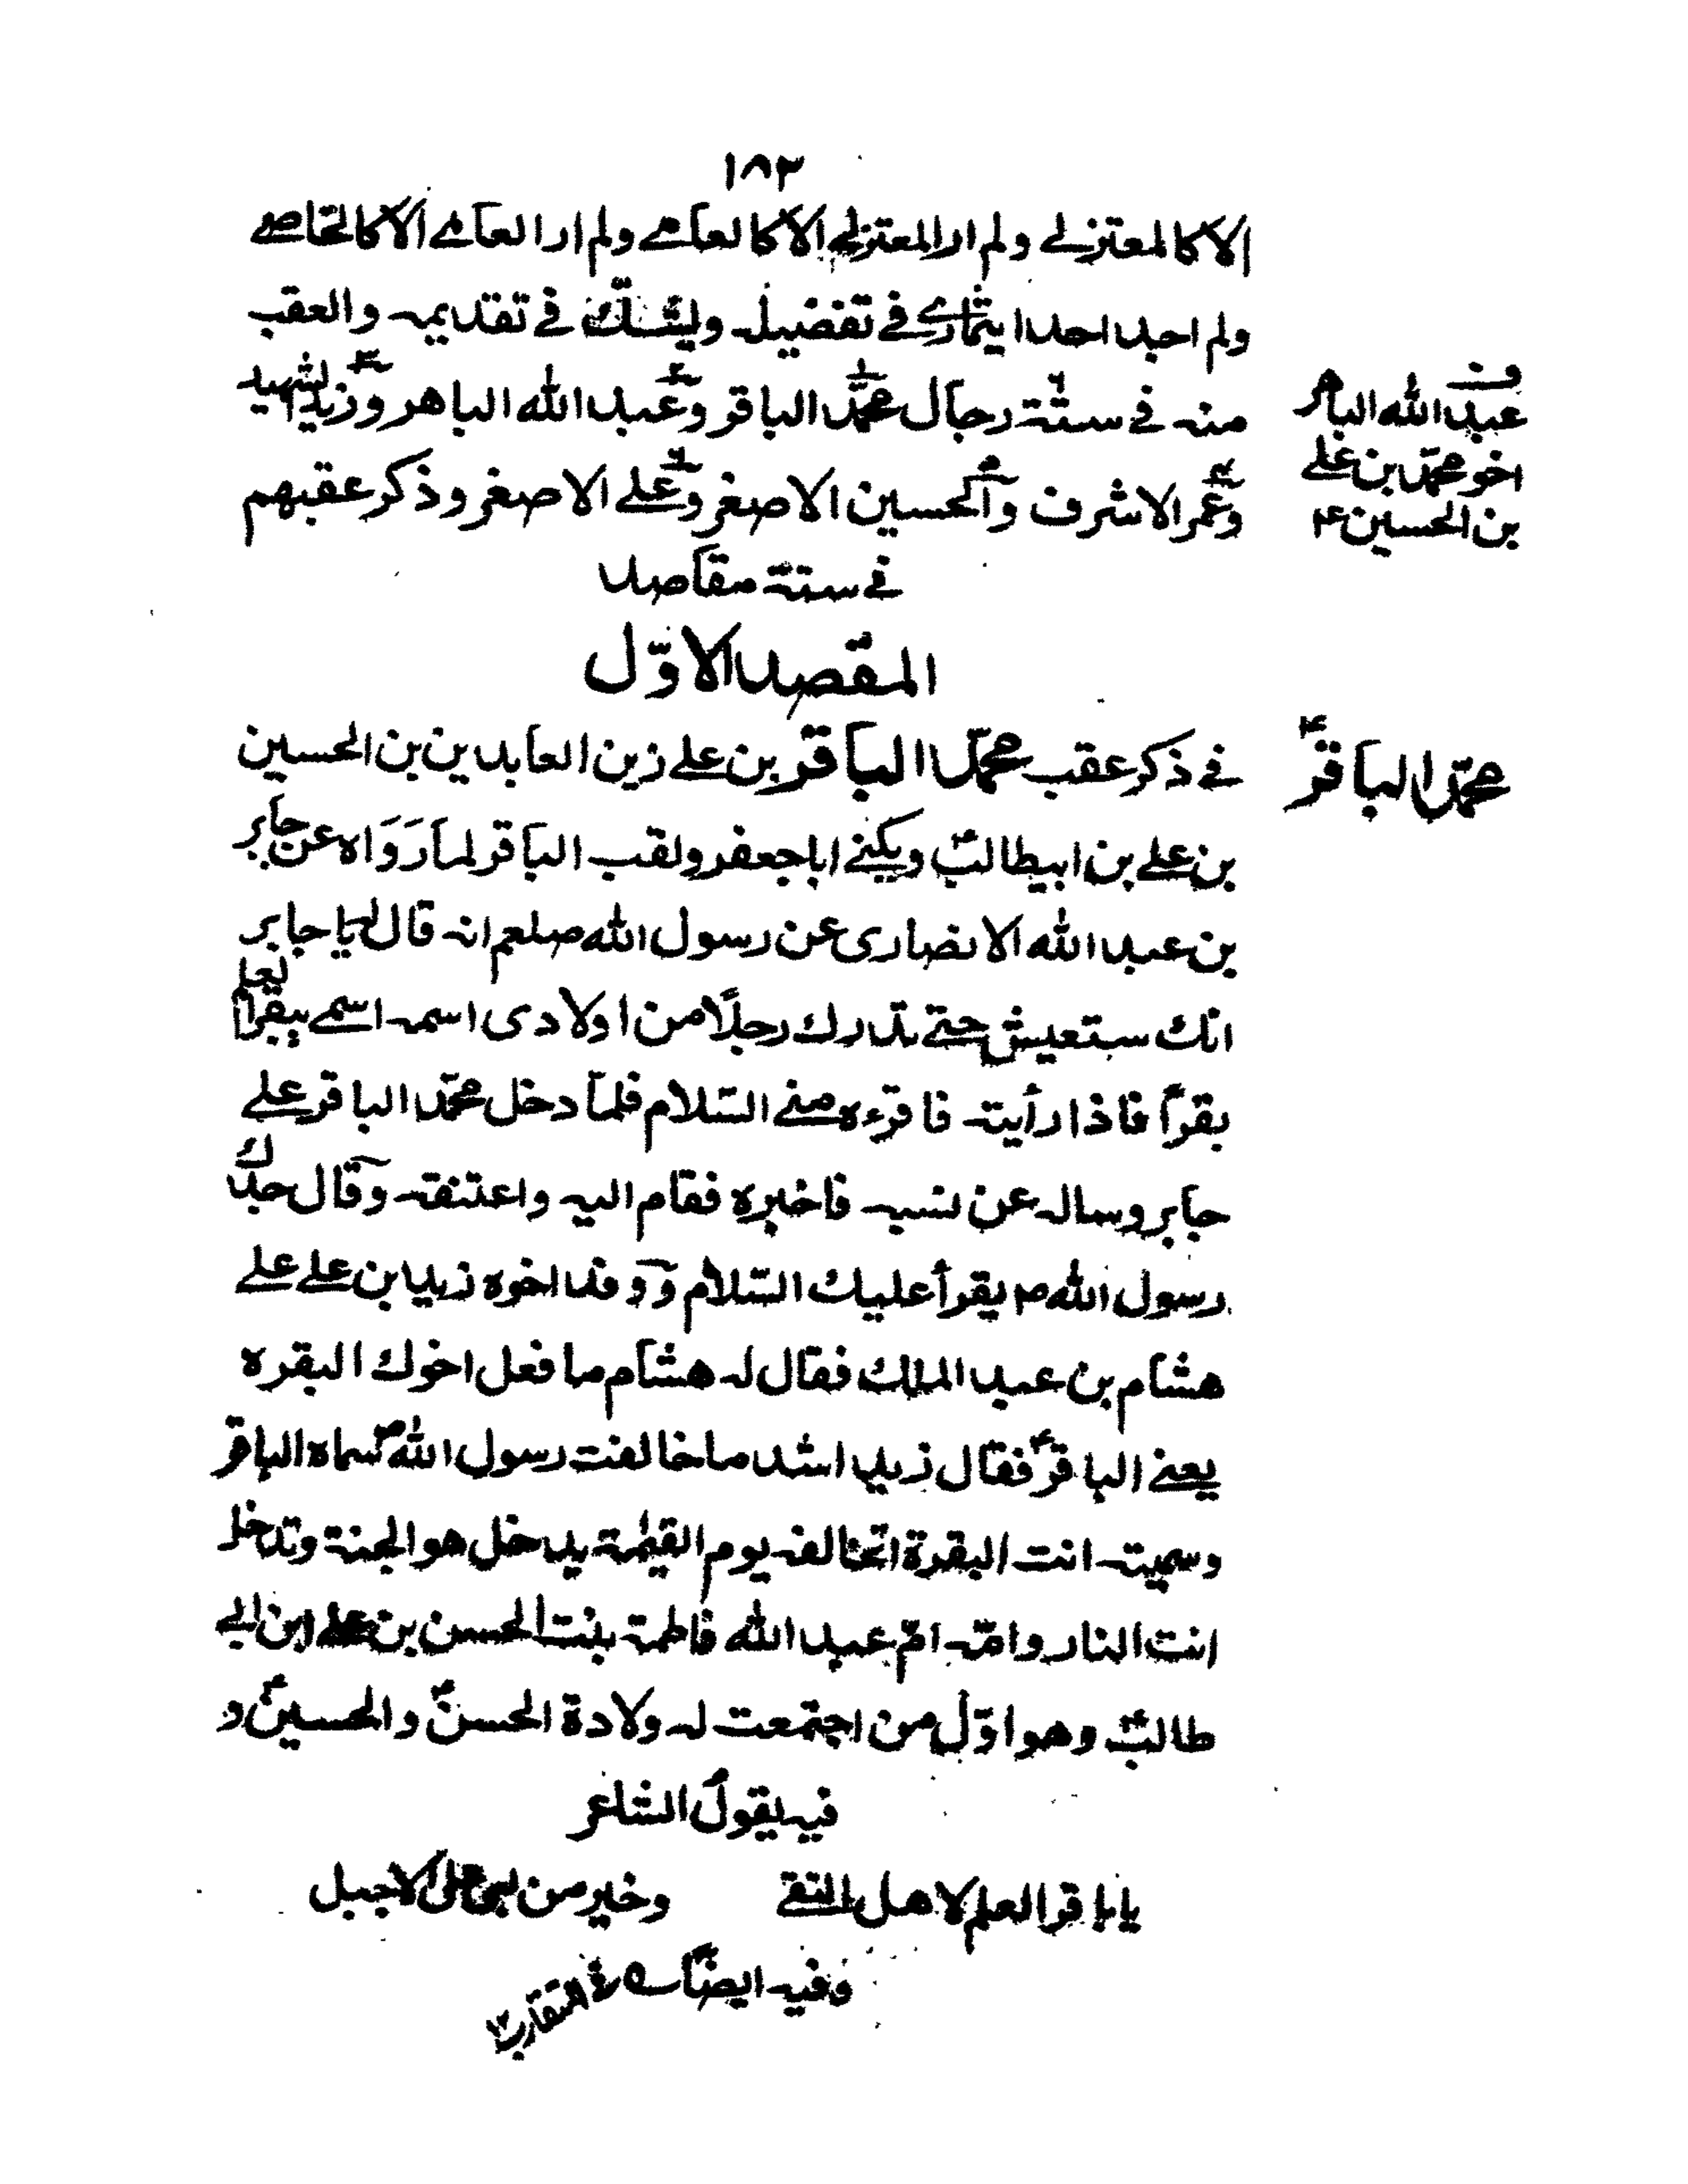 ١٨٣
الا كالمعتزلے ولم ار المعتزلے الا كالعامے ولم ار العامے الا كالخاصے
ولم اجد احدا يتمارے فے تفضيله وليشك فے تقديمه والعقب
منه فے ستة رجال محمّد الباقر وعبد الله الباهر وزيد الشهيد
وعمر الاشرف والحسين الاصغر وعلے الاصغر وذكر عقبهم
فے ستة مقاصد
عبد الله الباهر
اخو محمّد بن علے
بن الحسين ع
المقصد الاوّل
محمّد الباقر ع
فے ذكر عقب محمّد الباقر بن علے زين العابدين بن الحسين
بن علے بن ابيطالب ع ويكنے ابا جعفر ولقب الباقر لما رَوَاه عن جابر
بن عبد الله الانصارى عن رسول الله صلعم انه قال يا جابر
انك ستعيش حتے تدرك رجلاً من اولادى اسمه اسمے يبقر العلم
بقراً فاذا رأيته فاقرءه منے السّلام فلمّا دخل محمّد الباقر علے
جابر وساله عن نسبه فاخبره فقام اليه واعتنقه وقال جدّك
رسول الله ص يقرأ عليك السّلام ووفد اخوه زيد بن علے علے
هشام بن عبد الملك فقال له هشام ما فعل اخوك البقره
يعنے الباقر ع فقال زيد اشد ما خالفت رسول الله ص سماه الباقر
وسميته انت البقرة اتخالفه يوم القيٰمة يدخل هو الجنة وتدخل
انت النار وامّه امّ عبد الله فاطمة بنت الحسن بن علے ابن ابے
طالب ع وهو اوّل من اجتمعت له ولادة الحسن ع والحسين ع و
فيه يقول الشاعر
يا باقر العلم لاهل التقے وخير من لبى على الاجبل
وفيه ايضاً المتقارب